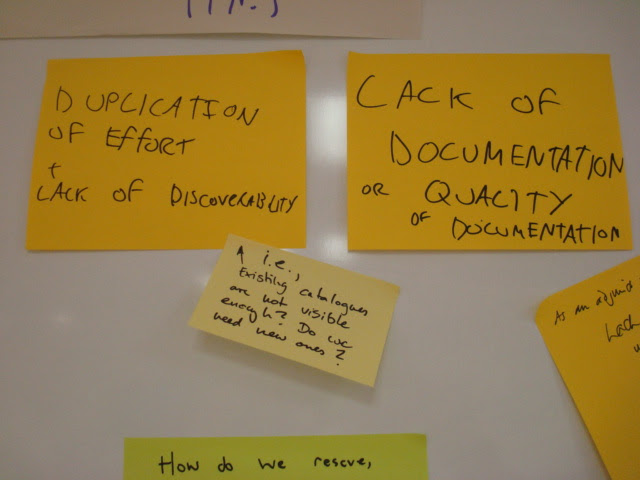 DUPLICATION
OF EFFORT
+
LACK OF DISCOVERABILITY
LACK OF
DOCUMENTATION
OR QUALITY
OF DOCUMENTATION
i.e.,
Existing catalogues
are not visible
enough? Do we
need new ones?
As an
How do we rescue,